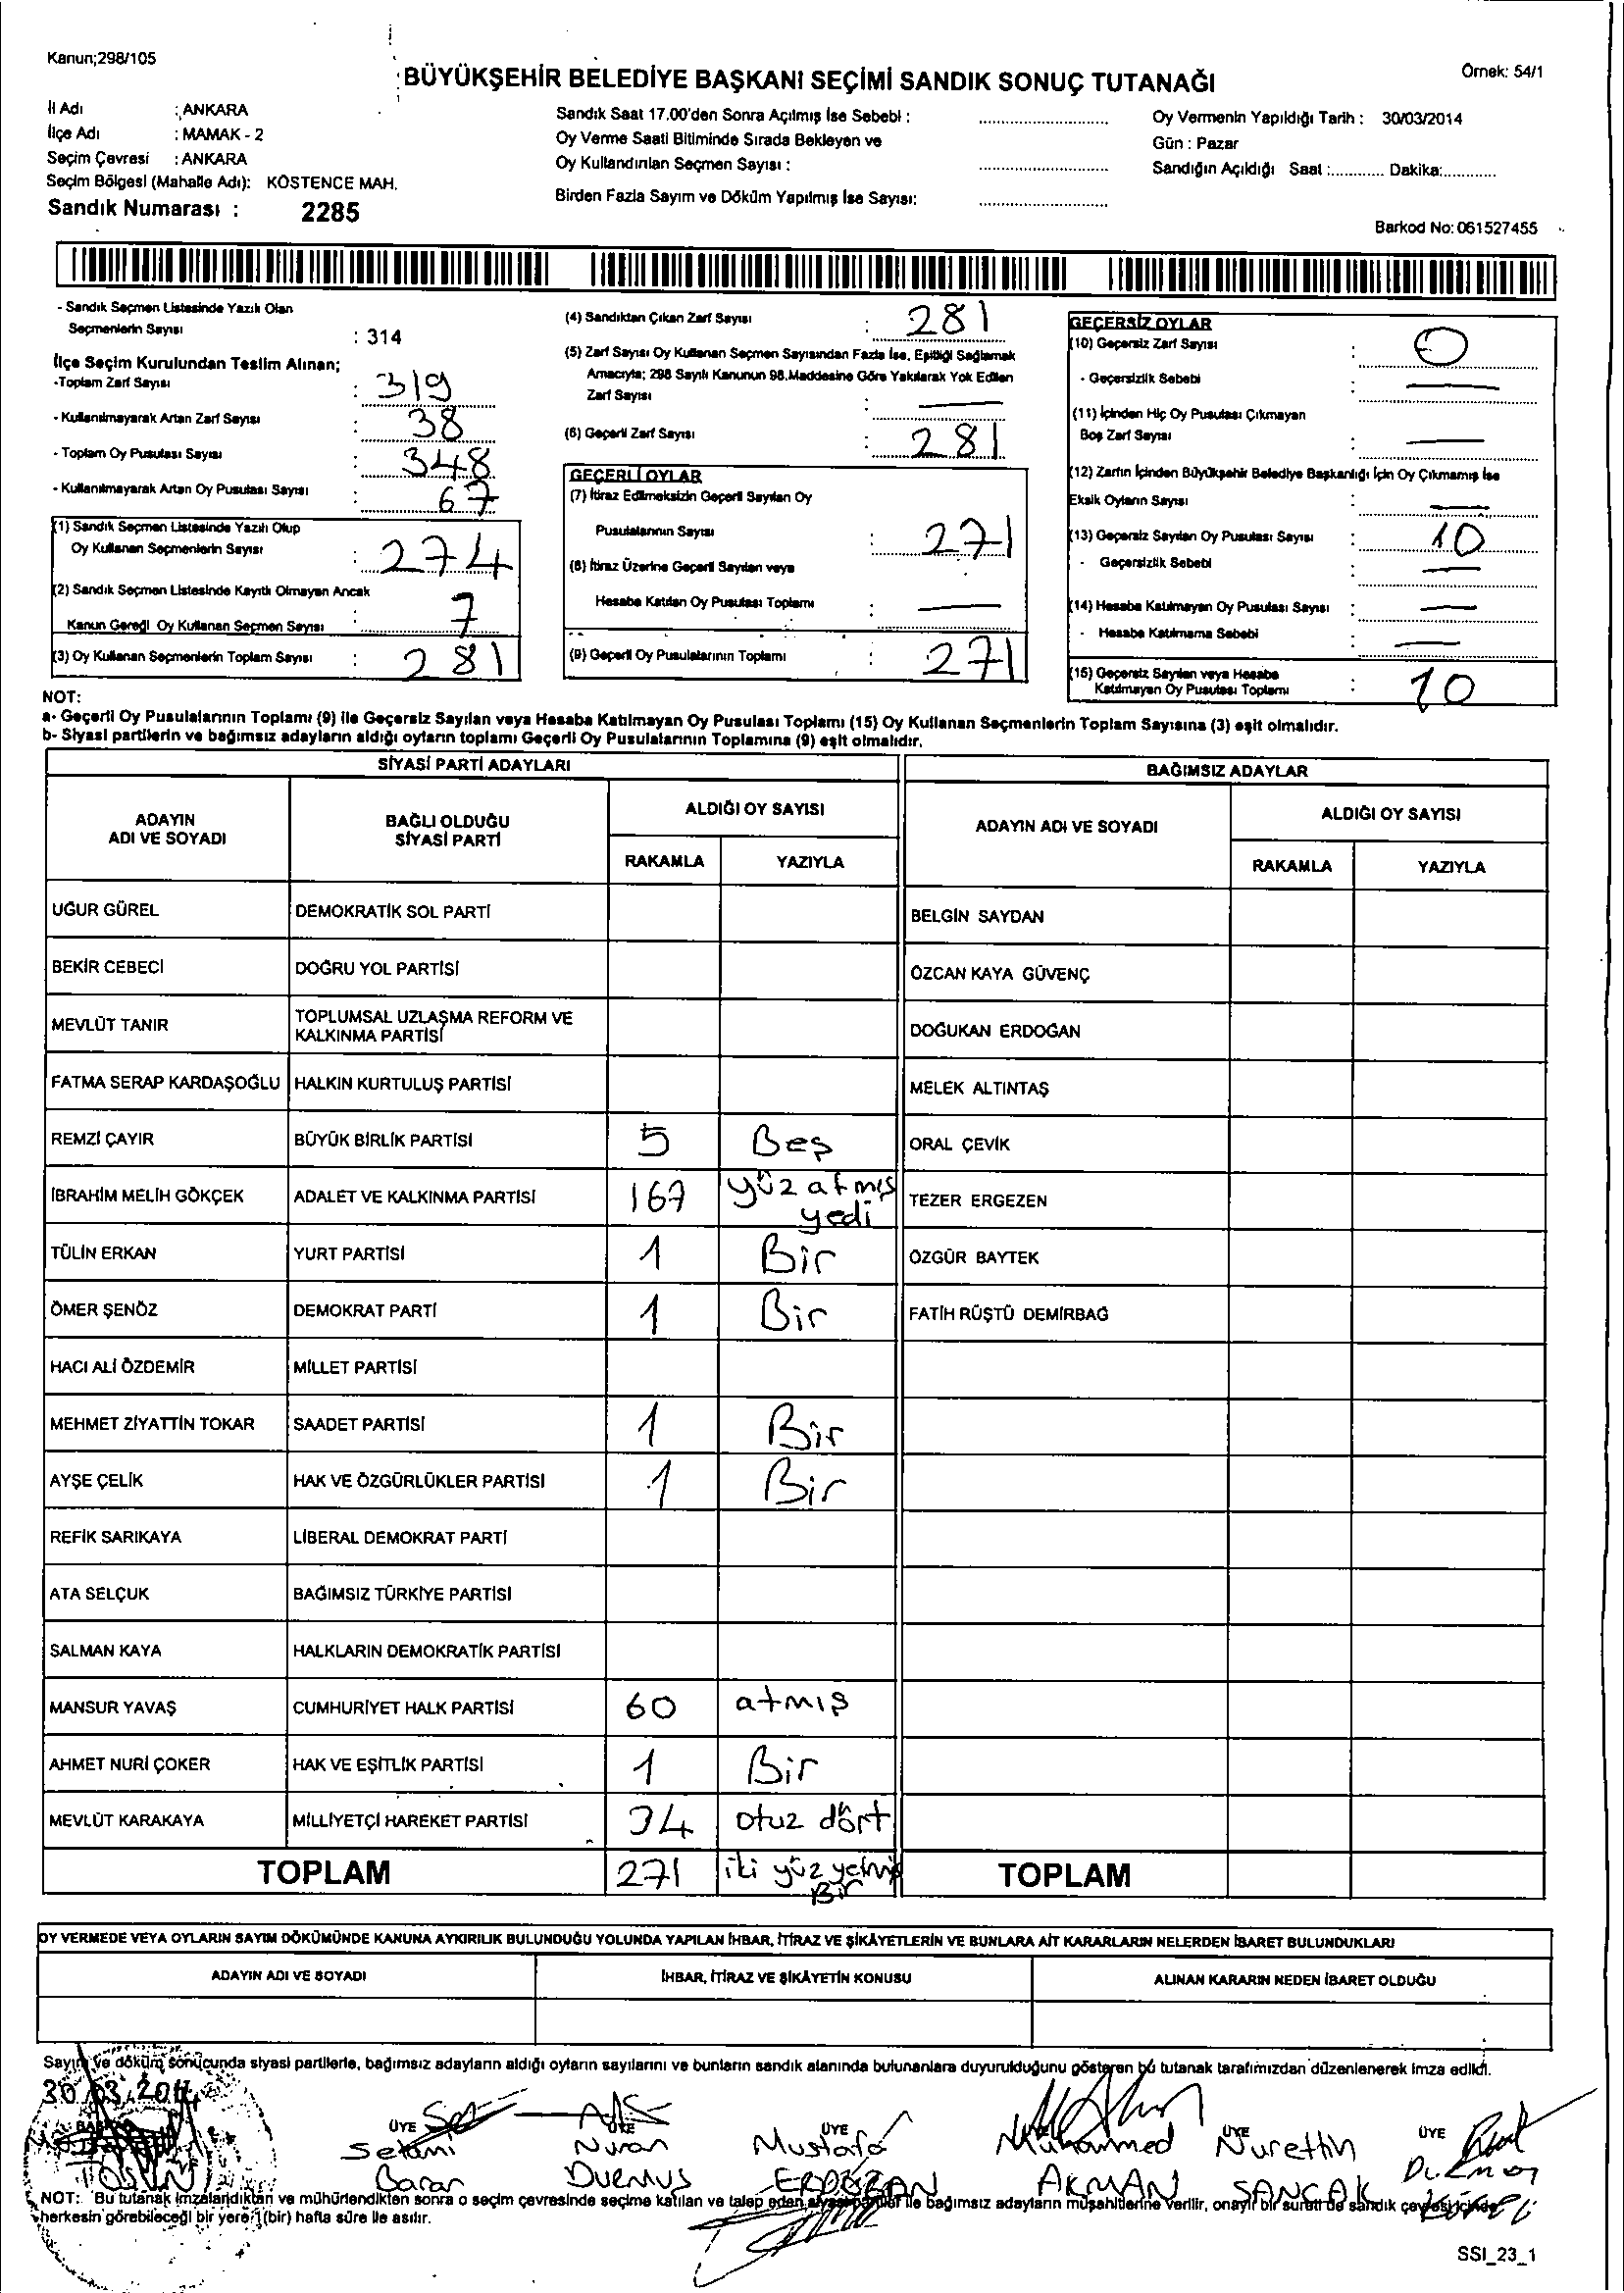 Kanun;298/105
BÜYÜKŞEHİR BELEDİYE BAŞKANI SEÇİMİ SANDIK SONUÇ TUTANAĞI
Örnek: 54/1
İl Adı : ANKARA
İlçe Adı : MAMAK - 2
Seçim Çevresi : ANKARA
Seçim Bölgesi (Mahalle Adı): KÖSTENCE MAH.
Sandık Numarası : 2285
Sandık Saat 17.00'den Sonra Açılmış İse Sebebi :
Oy Verme Saati Bitiminde Sırada Bekleyen ve
Oy Kullandırılan Seçmen Sayısı :
Birden Fazla Sayım ve Döküm Yapılmış İse Sayısı:
Oy Vermenin Yapıldığı Tarih : 30/03/2014
Gün : Pazar
Sandığın Açıldığı Saat :............ Dakika:............
Barkod No: 061527455
- Sandık Seçmen Listesinde Yazılı Olan
Seçmenlerin Sayısı : 314
İlçe Seçim Kurulundan Teslim Alınan;
-Toplam Zarf Sayısı : 319
- Kullanılmayarak Artan Zarf Sayısı : 38
- Toplam Oy Pusulası Sayısı : 348
- Kullanılmayarak Artan Oy Pusulası Sayısı : 67
(1) Sandık Seçmen Listesinde Yazılı Olup
Oy Kullanan Seçmenlerin Sayısı : 274
(2) Sandık Seçmen Listesinde Kayıtlı Olmayan Ancak
Kanun Gereği Oy Kullanan Seçmen Sayısı : 7
(3) Oy Kullanan Seçmenlerin Toplam Sayısı : 281
(4) Sandıktan Çıkan Zarf Sayısı : 281
(5) Zarf Sayısı Oy Kullanan Seçmen Sayısından Fazla İse, Eşitliği Sağlamak
Amacıyla; 298 Sayılı Kanunun 98.Maddesine Göre Yakılarak Yok Edilen
Zarf Sayısı : —
(6) Geçerli Zarf Sayısı : 281
GEÇERLİ OYLAR
(7) İtiraz Edilmeksizin Geçerli Sayılan Oy
Pusulalarının Sayısı : 271
(8) İtiraz Üzerine Geçerli Sayılan veya
Hesaba Katılan Oy Pusulası Toplamı : —
(9) Geçerli Oy Pusulalarının Toplamı : 271
GEÇERSİZ OYLAR
(10) Geçersiz Zarf Sayısı : 0
- Geçersizlik Sebebi : —
(11) İçinden Hiç Oy Pusulası Çıkmayan
Boş Zarf Sayısı : —
(12) Zarfın İçinden Büyükşehir Belediye Başkanlığı İçin Oy Çıkmamış İse
Eksik Oyların Sayısı : —
(13) Geçersiz Sayılan Oy Pusulası Sayısı : 10
- Geçersizlik Sebebi : —
(14) Hesaba Katılmayan Oy Pusulası Sayısı : —
- Hesaba Katılmama Sebebi : —
(15) Geçersiz Sayılan veya Hesaba
Katılmayan Oy Pusulası Toplamı : 10
NOT:
a- Geçerli Oy Pusulalarının Toplamı (9) ile Geçersiz Sayılan veya Hesaba Katılmayan Oy Pusulası Toplamı (15) Oy Kullanan Seçmenlerin Toplam Sayısına (3) eşit olmalıdır.
b- Siyasi partilerin ve bağımsız adayların aldığı oyların toplamı Geçerli Oy Pusulalarının Toplamına (9) eşit olmalıdır.
SİYASİ PARTİ ADAYLARI
BAĞIMSIZ ADAYLAR
ADAYIN ADI VE SOYADI
BAĞLI OLDUĞU SİYASİ PARTİ
ALDIĞI OY SAYISI
RAKAMLA YAZIYLA
ADAYIN ADI VE SOYADI
ALDIĞI OY SAYISI
RAKAMLA YAZIYLA
UĞUR GÜREL DEMOKRATİK SOL PARTİ BELGİN SAYDAN
BEKİR CEBECİ DOĞRU YOL PARTİSİ ÖZCAN KAYA GÜVENÇ
MEVLÜT TANIR TOPLUMSAL UZLAŞMA REFORM VE KALKINMA PARTİSİ DOĞUKAN ERDOĞAN
FATMA SERAP KARDAŞOĞLU HALKIN KURTULUŞ PARTİSİ MELEK ALTINTAŞ
REMZİ ÇAYIR BÜYÜK BİRLİK PARTİSİ 5 Beş ORAL ÇEVİK
İBRAHİM MELİH GÖKÇEK ADALET VE KALKINMA PARTİSİ 167 yüz atmış yedi TEZER ERGEZEN
TÜLİN ERKAN YURT PARTİSİ 1 Bir ÖZGÜR BAYTEK
ÖMER ŞENÖZ DEMOKRAT PARTİ 1 Bir FATİH RÜŞTÜ DEMİRBAĞ
HACI ALİ ÖZDEMİR MİLLET PARTİSİ
MEHMET ZİYATTİN TOKAR SAADET PARTİSİ 1 Bir
AYŞE ÇELİK HAK VE ÖZGÜRLÜKLER PARTİSİ 1 Bir
REFİK SARIKAYA LİBERAL DEMOKRAT PARTİ
ATA SELÇUK BAĞIMSIZ TÜRKİYE PARTİSİ
SALMAN KAYA HALKLARIN DEMOKRATİK PARTİSİ
MANSUR YAVAŞ CUMHURİYET HALK PARTİSİ 60 atmış
AHMET NURİ ÇOKER HAK VE EŞİTLİK PARTİSİ 1 Bir
MEVLÜT KARAKAYA MİLLİYETÇİ HAREKET PARTİSİ 34 otuz dört
TOPLAM 271 iki yüz yetmiş Bir TOPLAM
OY VERMEDE VEYA OYLARIN SAYIM DÖKÜMÜNDE KANUNA AYKIRILIK BULUNDUĞU YOLUNDA YAPILAN İHBAR, İTİRAZ VE ŞİKÂYETLERİN VE BUNLARA AİT KARARLARIN NELERDEN İBARET BULUNDUKLARI
ADAYIN ADI VE SOYADI İHBAR, İTİRAZ VE ŞİKÂYETİN KONUSU ALINAN KARARIN NEDEN İBARET OLDUĞU
Sayım ve döküm sonucunda siyasi partilerle, bağımsız adayların aldığı oyların sayılarını ve bunların sandık alanında bulunanlara duyurulduğunu gösteren bu tutanak tarafımızdan düzenlenerek imza edildi.
30/03/2014
ÜYE ÜYE ÜYE ÜYE ÜYE
Selami Nuran Mustafa Muhammed Nurettin
Baran DURMUŞ ERDOĞAN AKMAN SANCAK
NOT: Bu tutanak imzalandıktan ve mühürlendikten sonra o seçim çevresinde seçime katılan ve talep eden siyasi partiler ile bağımsız adayların müşahitlerine verilir, onaylı bir sureti de sandık çevresi içinde
herkesin görebileceği bir yere 1(bir) hafta süre ile asılır.
SSI_23_1